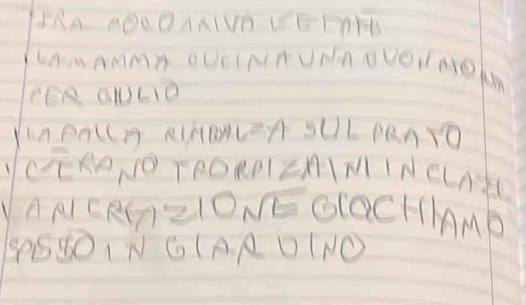 TRA POCO ARIVA LESTATE
LAMAMMA CUCINA UNA OVO
PER GIULIO
LA PALLA RIMBALZA SUL PRATO
CERANO TRORPI ZAINI IN CLASE
A RICREAZIONE GIOCHIAMO
SPSSO IN GIARDINO